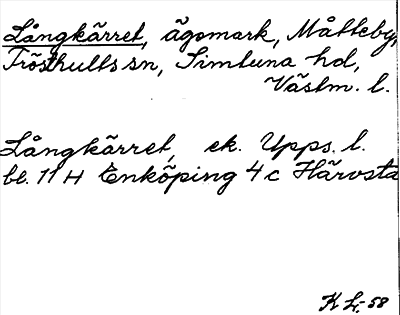 Långkärret, ägomark, Måtteby,
Frösthults sn, Simtuna hd,
Västm. l.
Långkärret, ek. Upps. l.
bl. 11 H Enköping 4 c Härvsta
K Lj-58